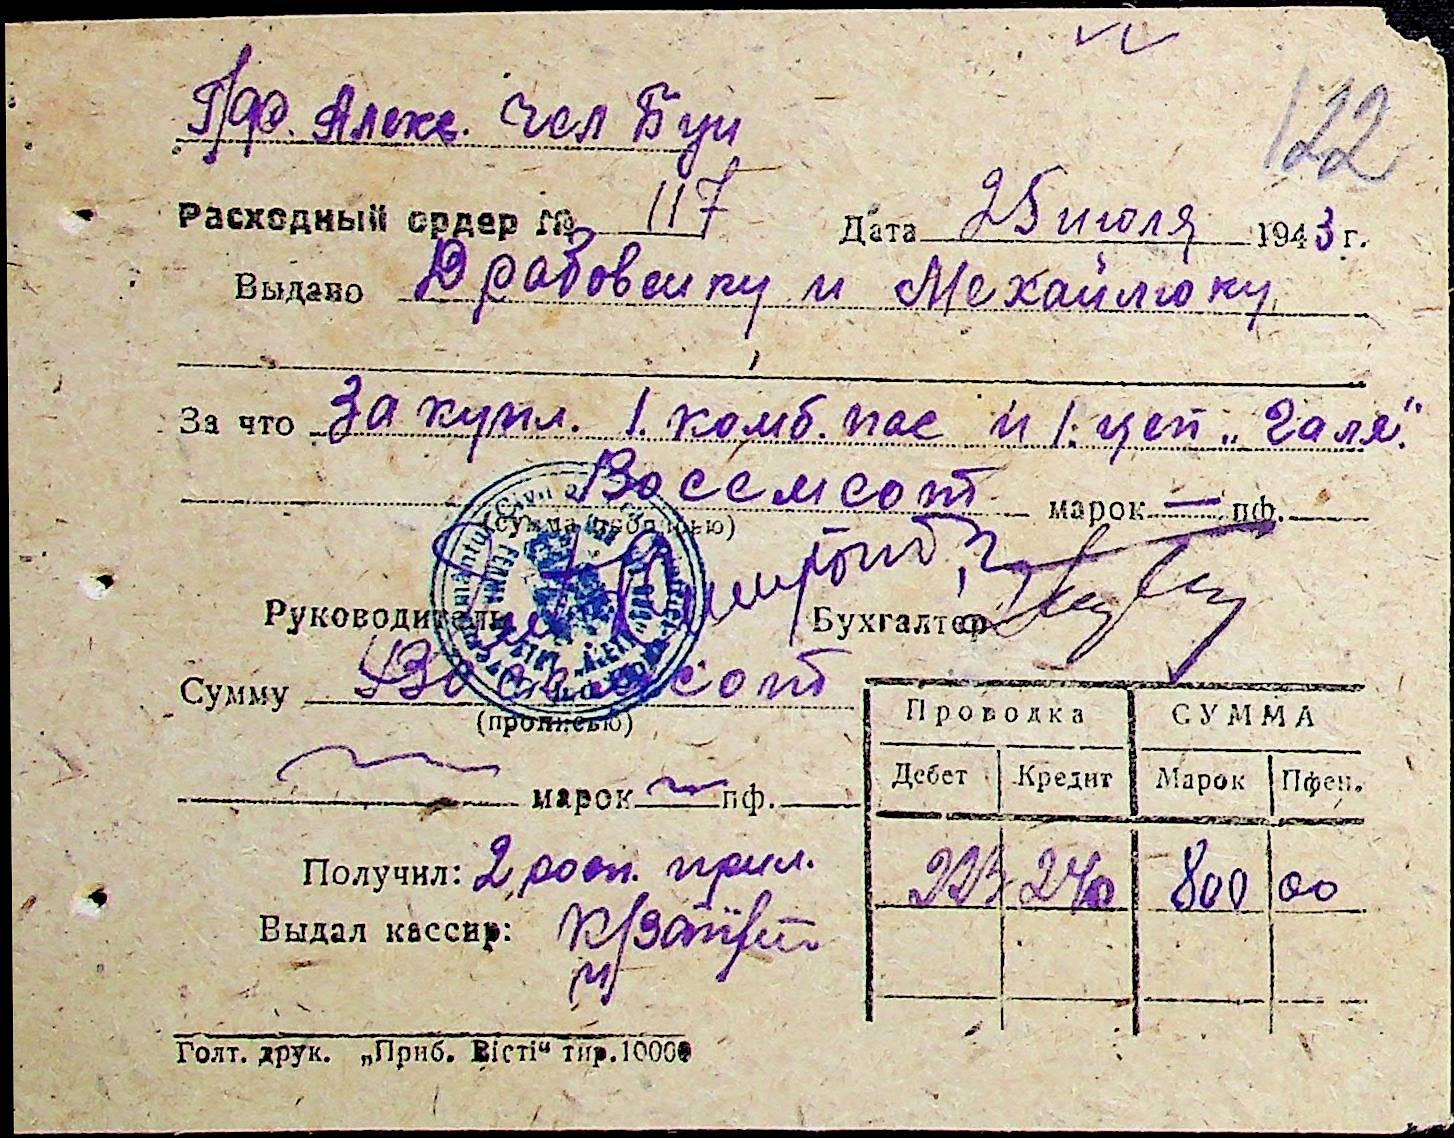 122
Алекс.
Расходный ордер № 117 Дата 25 июля 1943 г.
Выдано и Мехайлюку
За что За купл. 1. комб. пас и 1. цеп „Галя“.
Восемсот марок — пф.
(сумма прописью)
Руководитель Бухгалтер
Сумму Восемсот
(прописью)
марок пф.
Проводка СУММА
Дебет Кредит Марок Пфен.
223 240 800 00
Получил: 2 росп. прил.
Выдал кассир:
Голт. друк. „Приб. Вісті“ тир. 10000